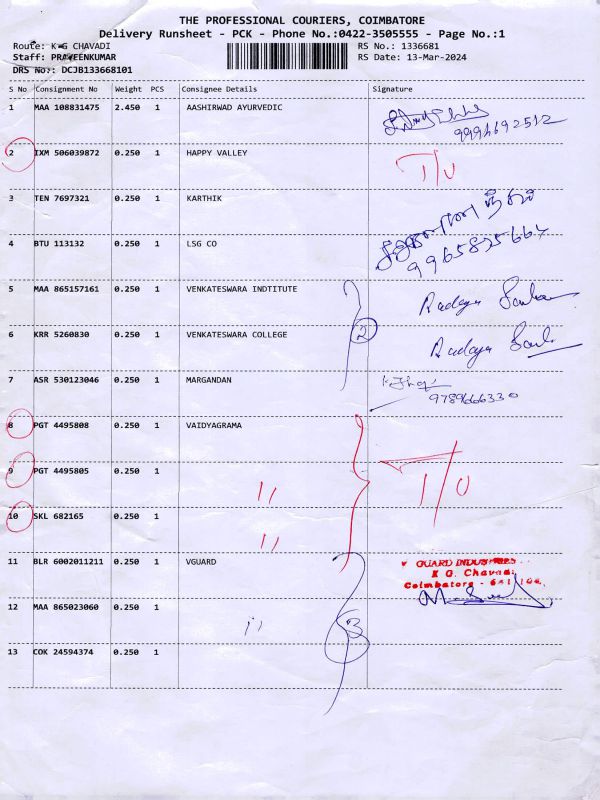 THE PROFESSIONAL COURIERS, COIMBATORE
Delivery Runsheet - PCK - Phone No.:0422-3505555 - Page No.:1
Route: K G CHAVADI RS No.: 1336681
Staff: PRAVEENKUMAR RS Date: 13-Mar-2024
DRS No: DCJB133668101
S No Consignment No Weight PCS Consignee Details Signature
1 MAA 108831475 2.450 1 AASHIRWAD AYURVEDIC
9994692512
2 IXM 506039872 0.250 1 HAPPY VALLEY T/U
3 TEN 7697321 0.250 1 KARTHIK
4 BTU 113132 0.250 1 LSG CO
9965825664
5 MAA 865157161 0.250 1 VENKATESWARA INDTITUTE
2
6 KRR 5260830 0.250 1 VENKATESWARA COLLEGE
7 ASR 530123046 0.250 1 MARGANDAN
9789666330
8 PGT 4495808 0.250 1 VAIDYAGRAMA
9 PGT 4495805 0.250 1 T/U
"
10 SKL 682165 0.250 1
"
11 BLR 6002011211 0.250 1 VGUARD GUARD INDUSTRIES
K G. Chavadi
Coimbatore -
12 MAA 865023060 0.250 1
" 3
13 COK 24594374 0.250 1